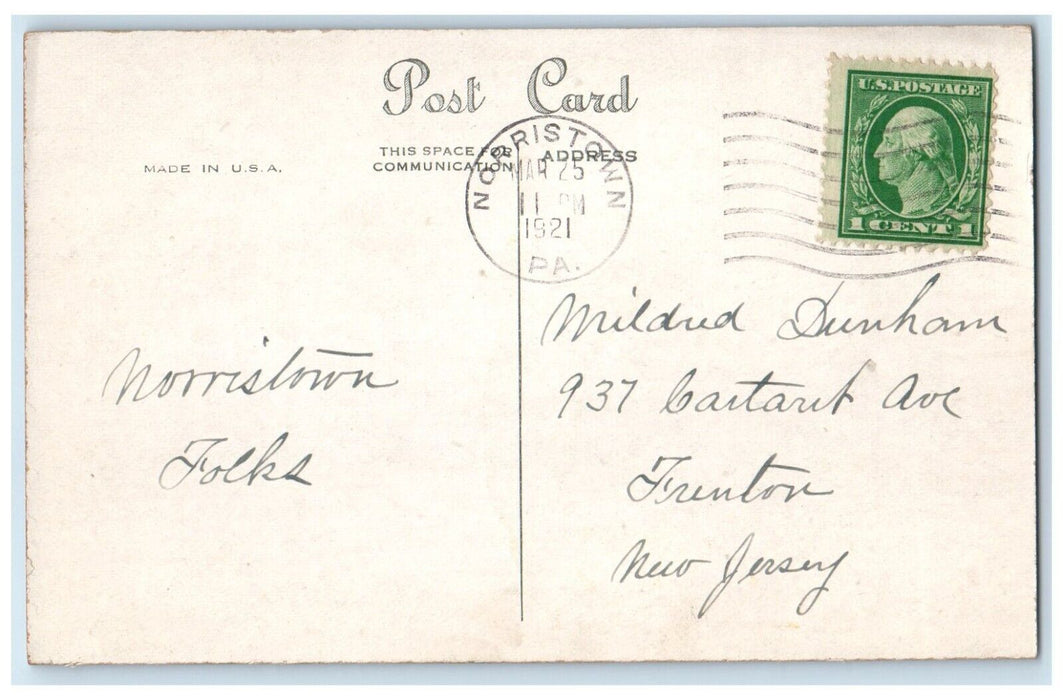 Post Card
THIS SPACE FOR
COMMUNICATION
ADDRESS
MADE IN U.S.A.
NORRISTOWN
MAR 25
11 PM
1921
PA.
U.S.POSTAGE
1 CENT 1
Norristown
Folks
Mildred Dunham
937 Cartaret Ave
Trenton
New Jersey